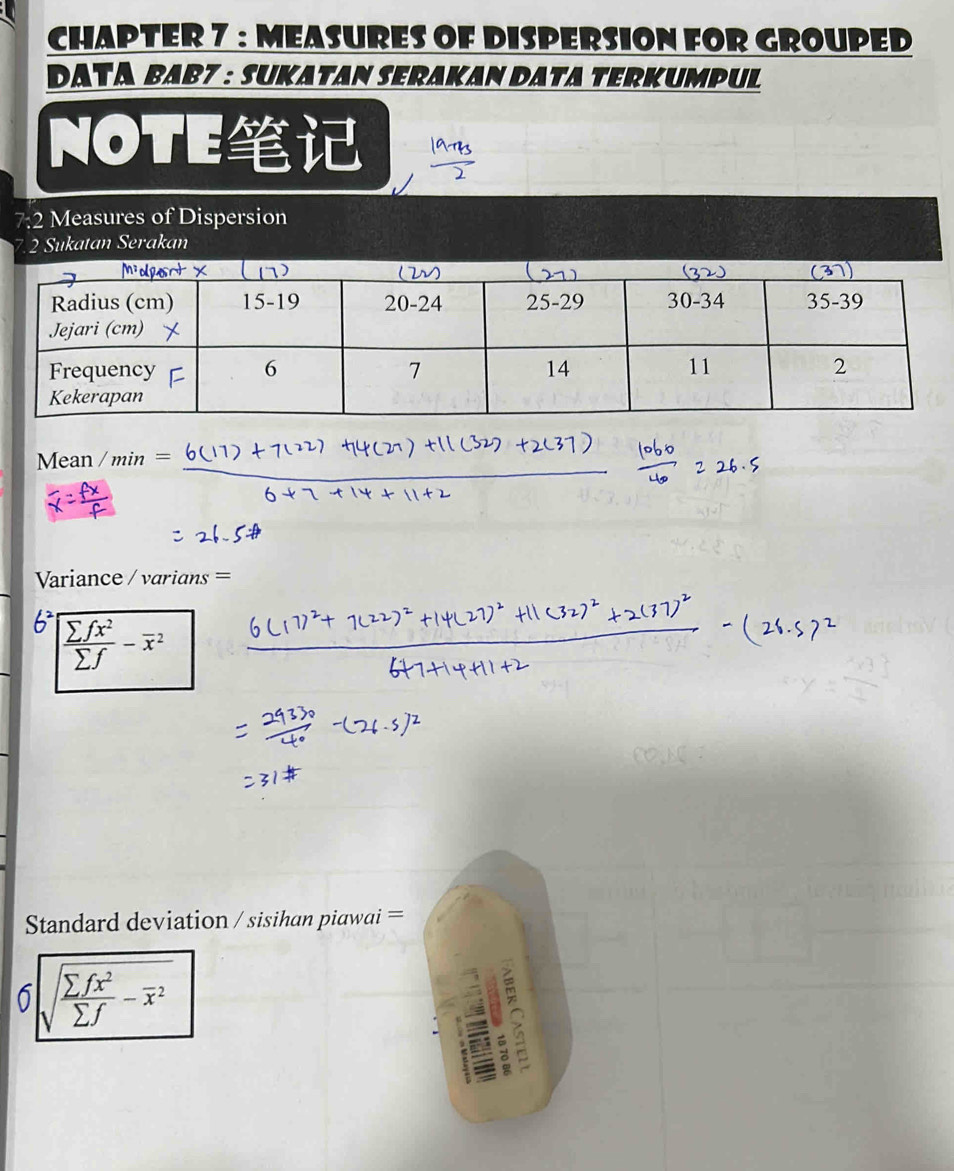 CHAPTER 7 : MEASURES OF DISPERSION FOR GROUPED
DATA BAB7 : SUKATAN SERAKAN DATA TERKUMPUL
NOTE笔记
7.2 Measures of Dispersion
7.2 Sukatan Serakan
Midpoint x (17) (22) (27) (32) (37)
Radius (cm) 15-19 20-24 25-29 30-34 35-39
Jejari (cm) x
Frequency F 6 7 14 11 2
Kekerapan
Mean / min = 6(17) + 7(22) + 14(27) + 11(32) + 2(37) / 6 + 7 + 14 + 11 + 2   1060/40 = 26.5
x̄ = fx/f
= 26.5#
Variance / varians =
6² ∑fx²/∑f − x̄²   6(17)² + 7(22)² + 14(27)² + 11(32)² + 2(37)² / 6+7+14+11+2 − (26.5)²
= 29330/40 − (26.5)²
= 31#
Standard deviation / sisihan piawai =
6 √(∑fx²/∑f − x̄²)
FABER CASTELL
18 70 86